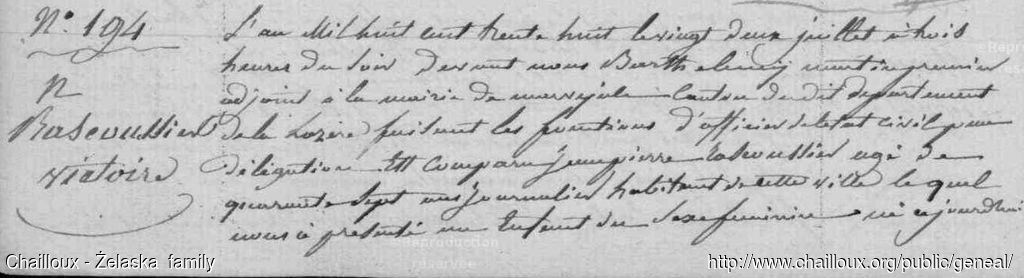 N.° 194
N
Rascoussier
victoire
L'an Mil huit cent trente huit le vingt deux juillet à trois
heures du soir devant nous Barthelemy martin premier
adjoint à la mairie de marvejols canton du dit departement
de la Lozère faisant les fonctions d'officier de l'etat civil par
délégation Est comparu jean pierre Rascoussier agé de
quarante sept ans journalier habitant de cette ville le quel
nous a presenté un Enfant du Sexe feminin né ajourdhui
Reproduction
réservée
Chailloux - Żelaska family
http://www.chailloux.org/public/geneal/